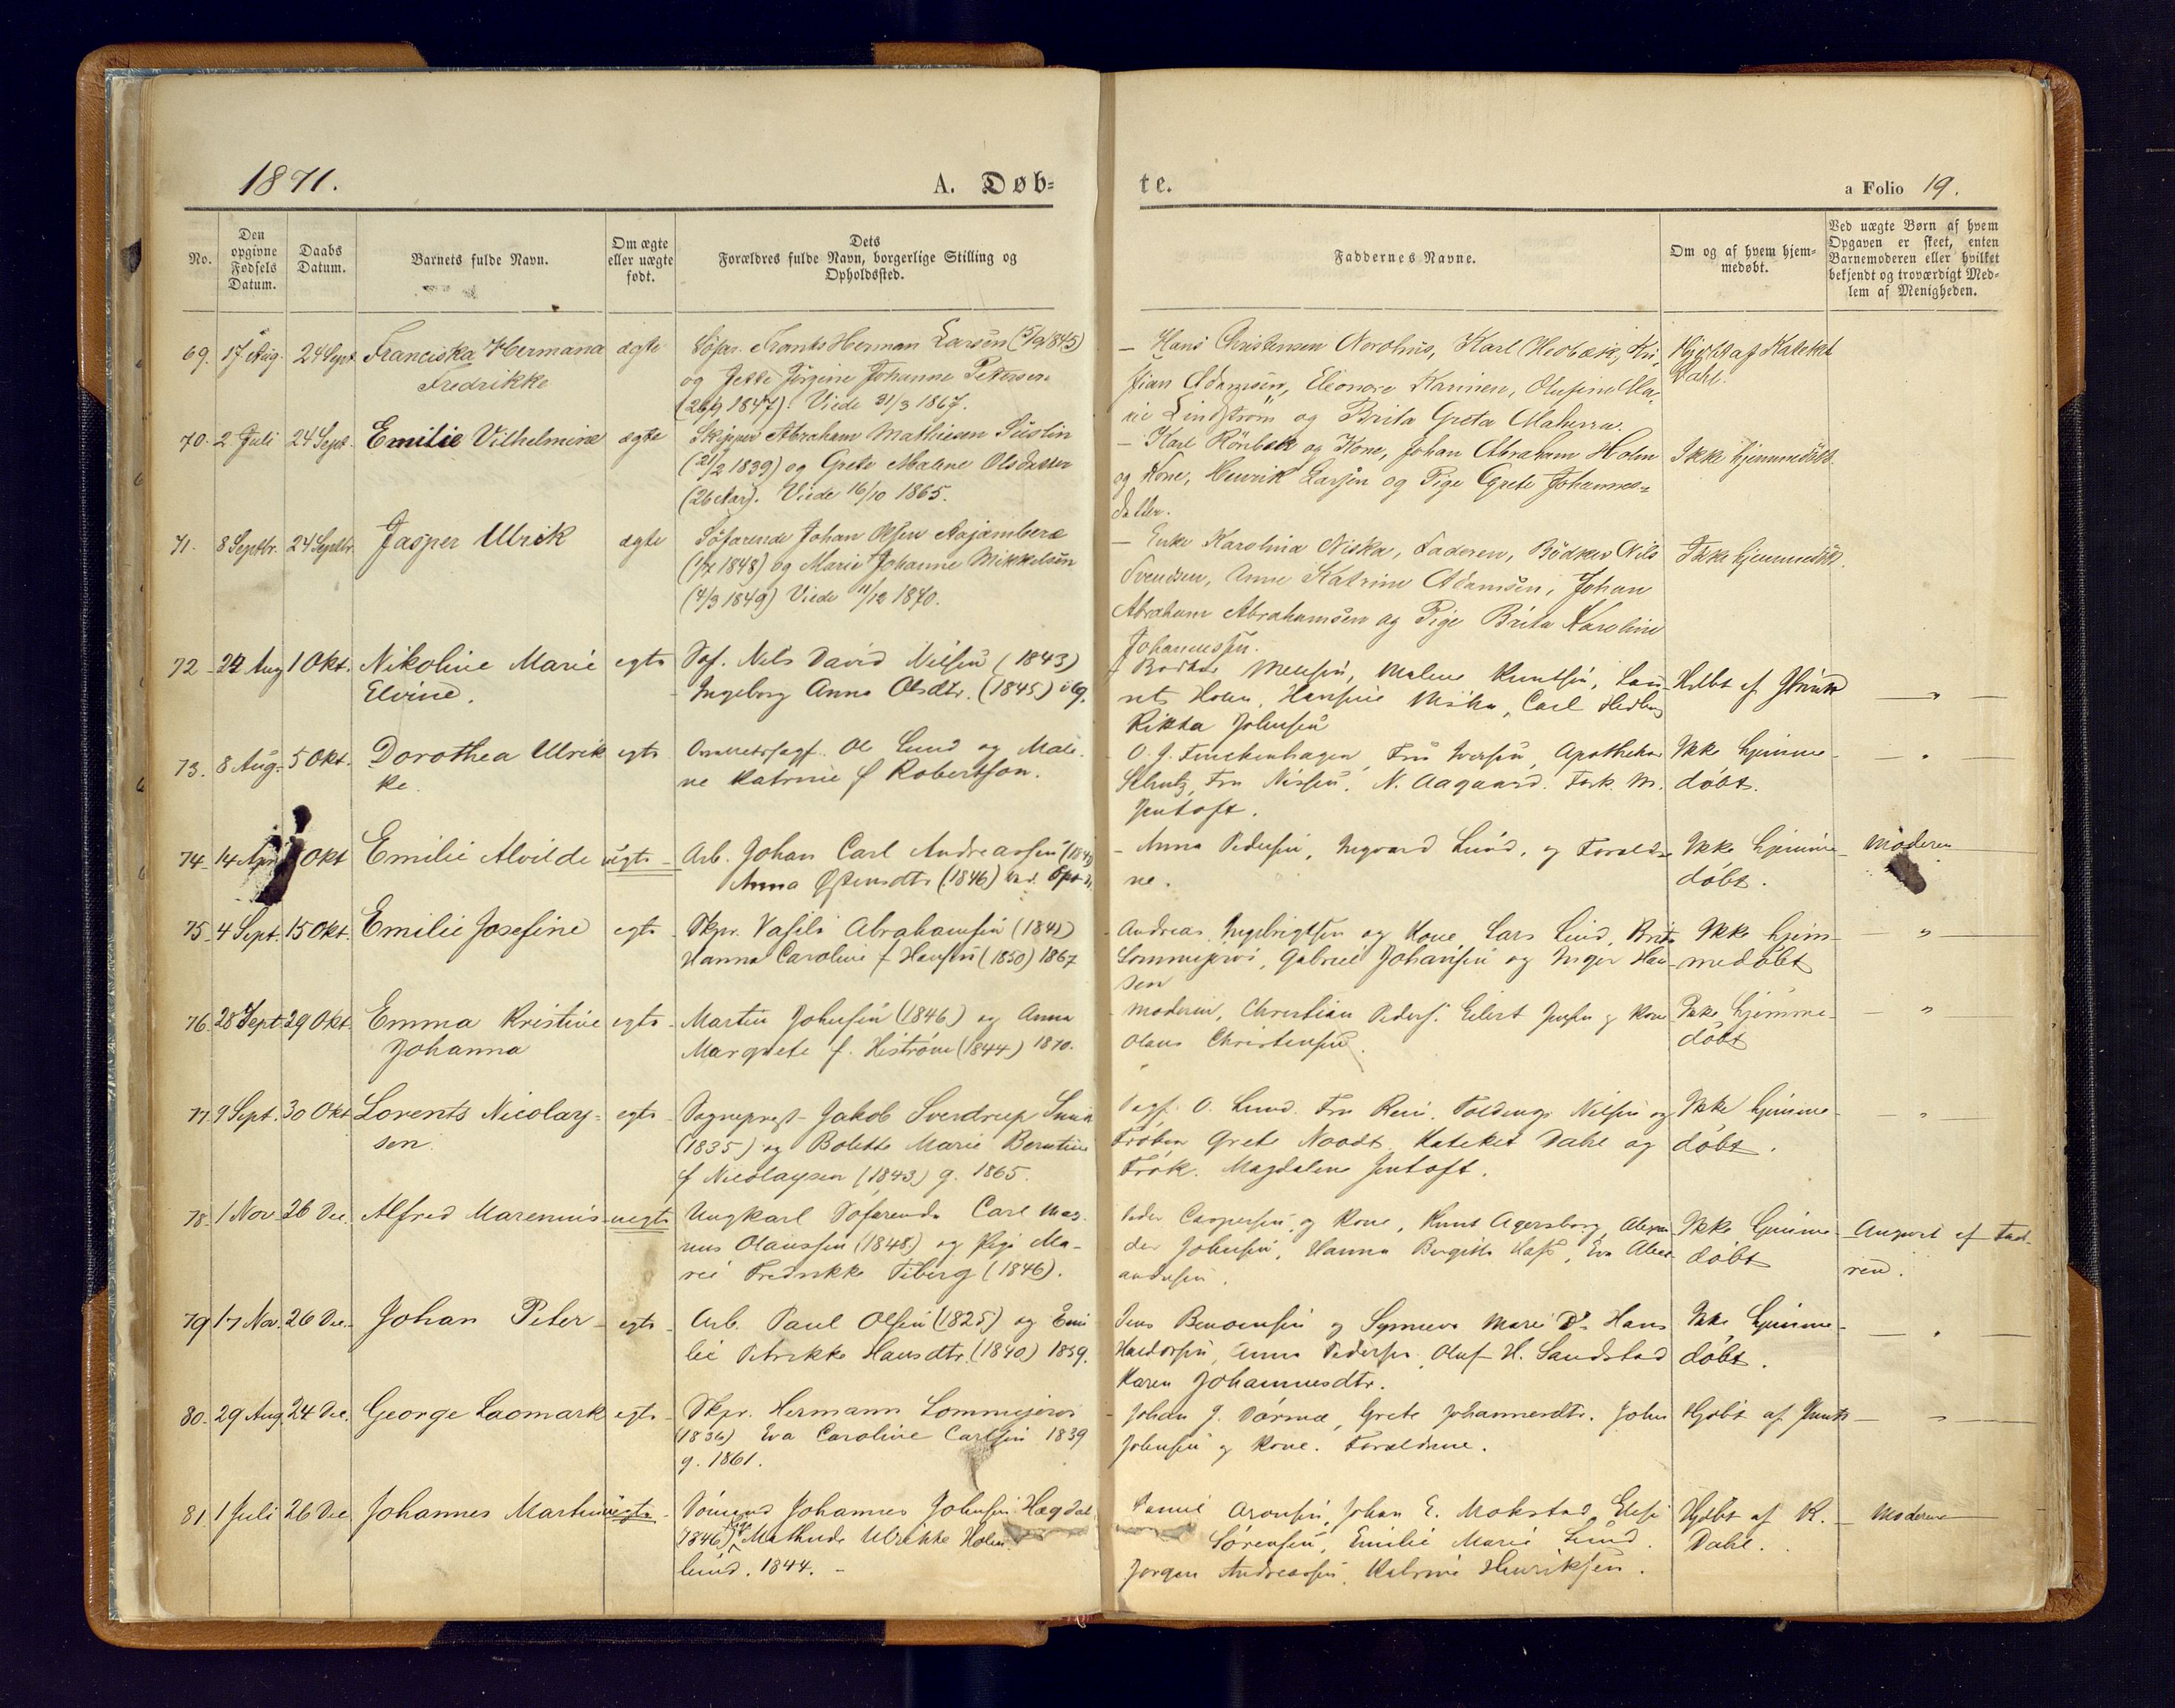 1871.
A. Døb=
te.
a Folio 19.
No.
Den opgivne Fødsels Datum.
Daabs Datum.
Barnets fulde Navn.
Om ægte eller uægte født.
Dets
Forældres fulde Navn, borgerlige Stilling og
Opholdssted.
Faddernes Navne.
Om og af hvem hjem=
medøbt.
Ved uægte Børn af hvem
Opgaven er skeet, enten
Barnemoderen eller hvilket
bekjendt og troværdigt Med=
lem af Menigheden.
69. 17 Aug. 24 Sept. Franciska Hermana ægte Søfar. Frants Herman Larsen
Fredrikke og Jette Jørgine Johanne Petersen
(26/9 1847). Viede 31/3 1867.
— Hans Christensen Nordhus, Karl Hedbæk, Kri
stian Adamsen, Eleonore Karinen, Olufine Ma-
rie Lindstrøm og Brita Greta Maherra.
Hjdbt af Kateket
Dahl.
70. 2 Juli 24 Sept. Emilie Vilhelmine ægte Skipper Abraham Mathisen
(21/2 1839) og Grete Malene Olsdatter
(26 Aar). Viede 16/10 1865.
— Karl Rönbæk og Kone, Johan Abraham Holm
og Kone, Henrik Larsen og Pige Grete Johannes=
datter.
Ikke hjemmedöbt.
71. 8 Septbr. 24 Septbr. Jasper Ulrik ægte Söfarende Johan Olsen
(1848) og Marie Johanne Mikkelsen
(4/3 1849) Viede 11/12 1870.
— Enke Karolina Niska, Faderen, Bödker Nils
Svendsen, Anne Katrine Adamsen, Johan
Abraham Abrahamsen og Pige Brita Karoline
Johannessen.
Ikke hjemmedöbt.
72 22 Aug 1 Okt. Nikoline Marie egte Søf. Nils David Nilsen (1843)
Elvine. Ingeborg Anna Olsdtr. (1845)
Nilsen, Malene Knutsen,
Holm, Hansine Niska, Carl
Rikka Johnsen
Hdbt af
73. 8 Aug. 5 Okt. Dorothea Ulrik egte Ole Lund og Male-
ke. ne Katrine f Robertson.
O. J. Finckenhagen, Fru Iversen, Apotheker
Schutz, Fru Nissen, N. Aagaard. Frk. M.
Jentoft.
Ikke hjemme-
døbt.
74 14 Apr Okt Emilie Alvilde uegte Arb. Johan Carl Andreassen
Anna (1846)
- Anna Pedersen, Ingvard Lund, og Foraeldre
ne.
Ikke hjemme-
døbt.
Moderen
75 4 Sept. 15 Okt. Emilie Josefine egte Skpr. Vasili Abrahamsen (1841)
Hanna Caroline f Hansen (1850) 1867
Andreas Ingebrigtsen og Kone, Lars Lund, Brita
Lommijervi, Gabriel Johansen og Inger Han-
sen
Ikke hjem-
medøbt
76. 28 Sept 29 Okt. Emma Kristine egte Martin Johnsen (1846) og Anna
Johanna Margrete f. (1844) 1870.
Moderen, Christian Peders. Eilert Jensen og Kone
Olaus Christensen.
Ikke hjemme-
døbt
77. 9 Sept. 30 Okt Lorents Nicolay- egte Sognepræst Jakob Sverdrup Smith
sen. (1835) og Bolette Marie Berntine
f Nicolaysen (1843) g. 1865.
O. Lund. Fru Nilsen og
Frøken Grete Noodt. Kateket Dahl og
Frøk. Magdalene Jentoft.
Ikke hjemme-
døbt.
78. 1 Nov 26 Dec. Alfred Marennius uegte Ungkarl Søfarende Carl Mag-
nus Olaussen (1848) og Pige Ma-
rie Fredrikke Fiberg (1846).
Peder Caspersen og Kone, Knut Agersborg, Alexan
der Johnsen, Hanna Bergitte Hass, Eva Alex-
andersen.
Ikke hjemme-
døbt
Angivet af Fad-
ren.
79 17 Nov. 26 Dec. Johan Peter egte Arb. Paul Olsen (1825) og Emi
lie Petrikke Hansdtr. (1840) 1859.
Jens og Marie Hans
Haldorsen, Anna Pedersen, Oluf H. Sandstad
Karen Johannesdtr.
Ikke hjemme-
døbt.
80. 29 Aug. 24 Dec. George Laomark egte Skpr. Hermann Lommijervi
(1836) Eva Caroline Carlsen 1839
g. 1861.
Johan J. Grete Johannesdtr. John
Johnsen og Kone. Foraeldrene.
Hjdbt af
81. 1 Juli 26 Dec Johannes Martin uegte Johannes Johnsen Hægdal
1846) Pige Mathilde Ulrikke Holm
lund. 1844.
Daniel Aronsen, Johan E. Mokstad, Elese
Sørensen, Emilie Marie Lund.
Jørgen Andreassen, Katrine Henriksen.
Hjdbt af K.
Dahl.
Moderen